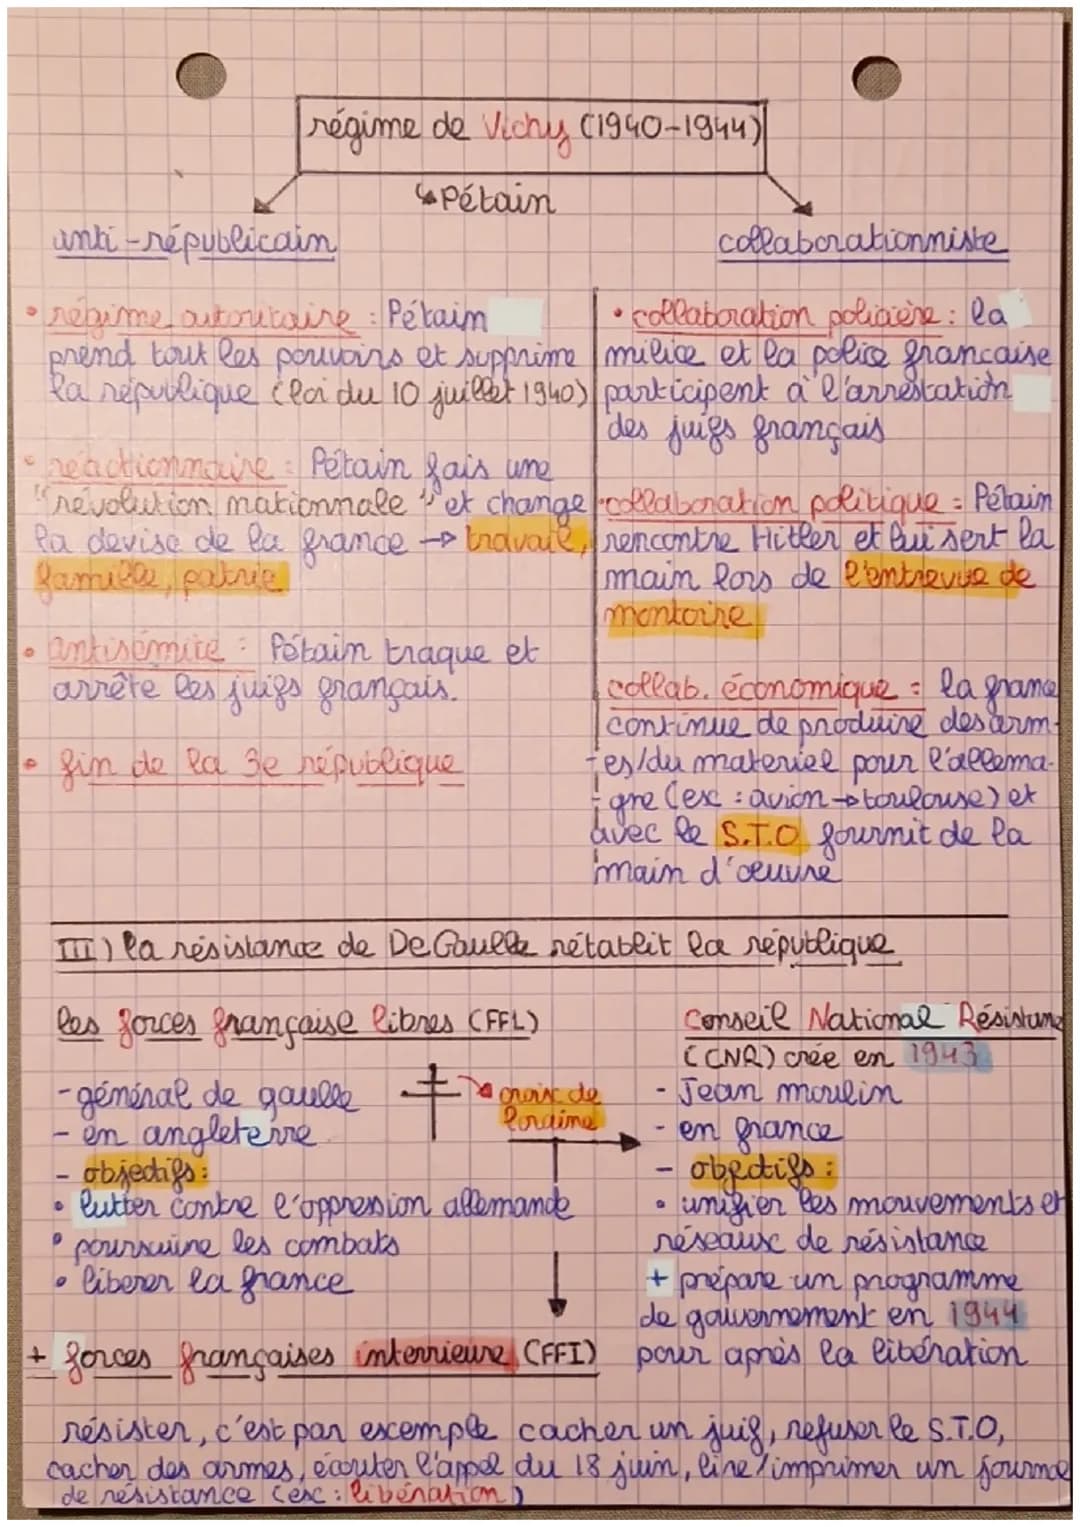 régime de Vichy (1940-1944)
↳Pétain
anti-républicain
régime autoritaire : Pétain
prend tout les pouvoirs et supprime
la république (loi du 10 juillet 1940)
réactionnaire : Pétain fais une
"révolution nationnale" et change
la devise de la france → travail,
famille, patrie
antisémite : Pétain traque et
arrête les juifs français.
fin de la 3e république
collaborationniste
collaboration policière : la
milice et la police francaise
participent à l'arrestation
des juifs français
collaboration politique : Pétain
rencontre Hitler et lui sert la
main lors de l'entrevue de
montoire
collab. économique : la france
continue de produire des arm-
es/du materiel pour l'allema-
gne (ex : avion → toulouse) et
avec le S.T.O fournit de la
main d'œuvre
III) la résistance de De Gaulle rétablit la république
les forces française libres (FFL)
- général de gaulle
- en angleterre
- objectifs :
• lutter contre l'oppression allemande
• poursuivre les combats
• liberer la france
croix de
loraine
+ forces françaises interrieure (FFI)
Conseil National Résistance
(CNR) crée en 1943
- Jean moulin
- en france
- objectifs :
• unifier les mouvements et
réseaux de résistance
+ prépare un programme
de gouvernement en 1944
pour après la libération
résister, c'est par exemple cacher un juif, refuser le S.T.O,
cacher des armes, écouter l'appel du 18 juin, lire/imprimer un journal
de résistance (ex : libération)